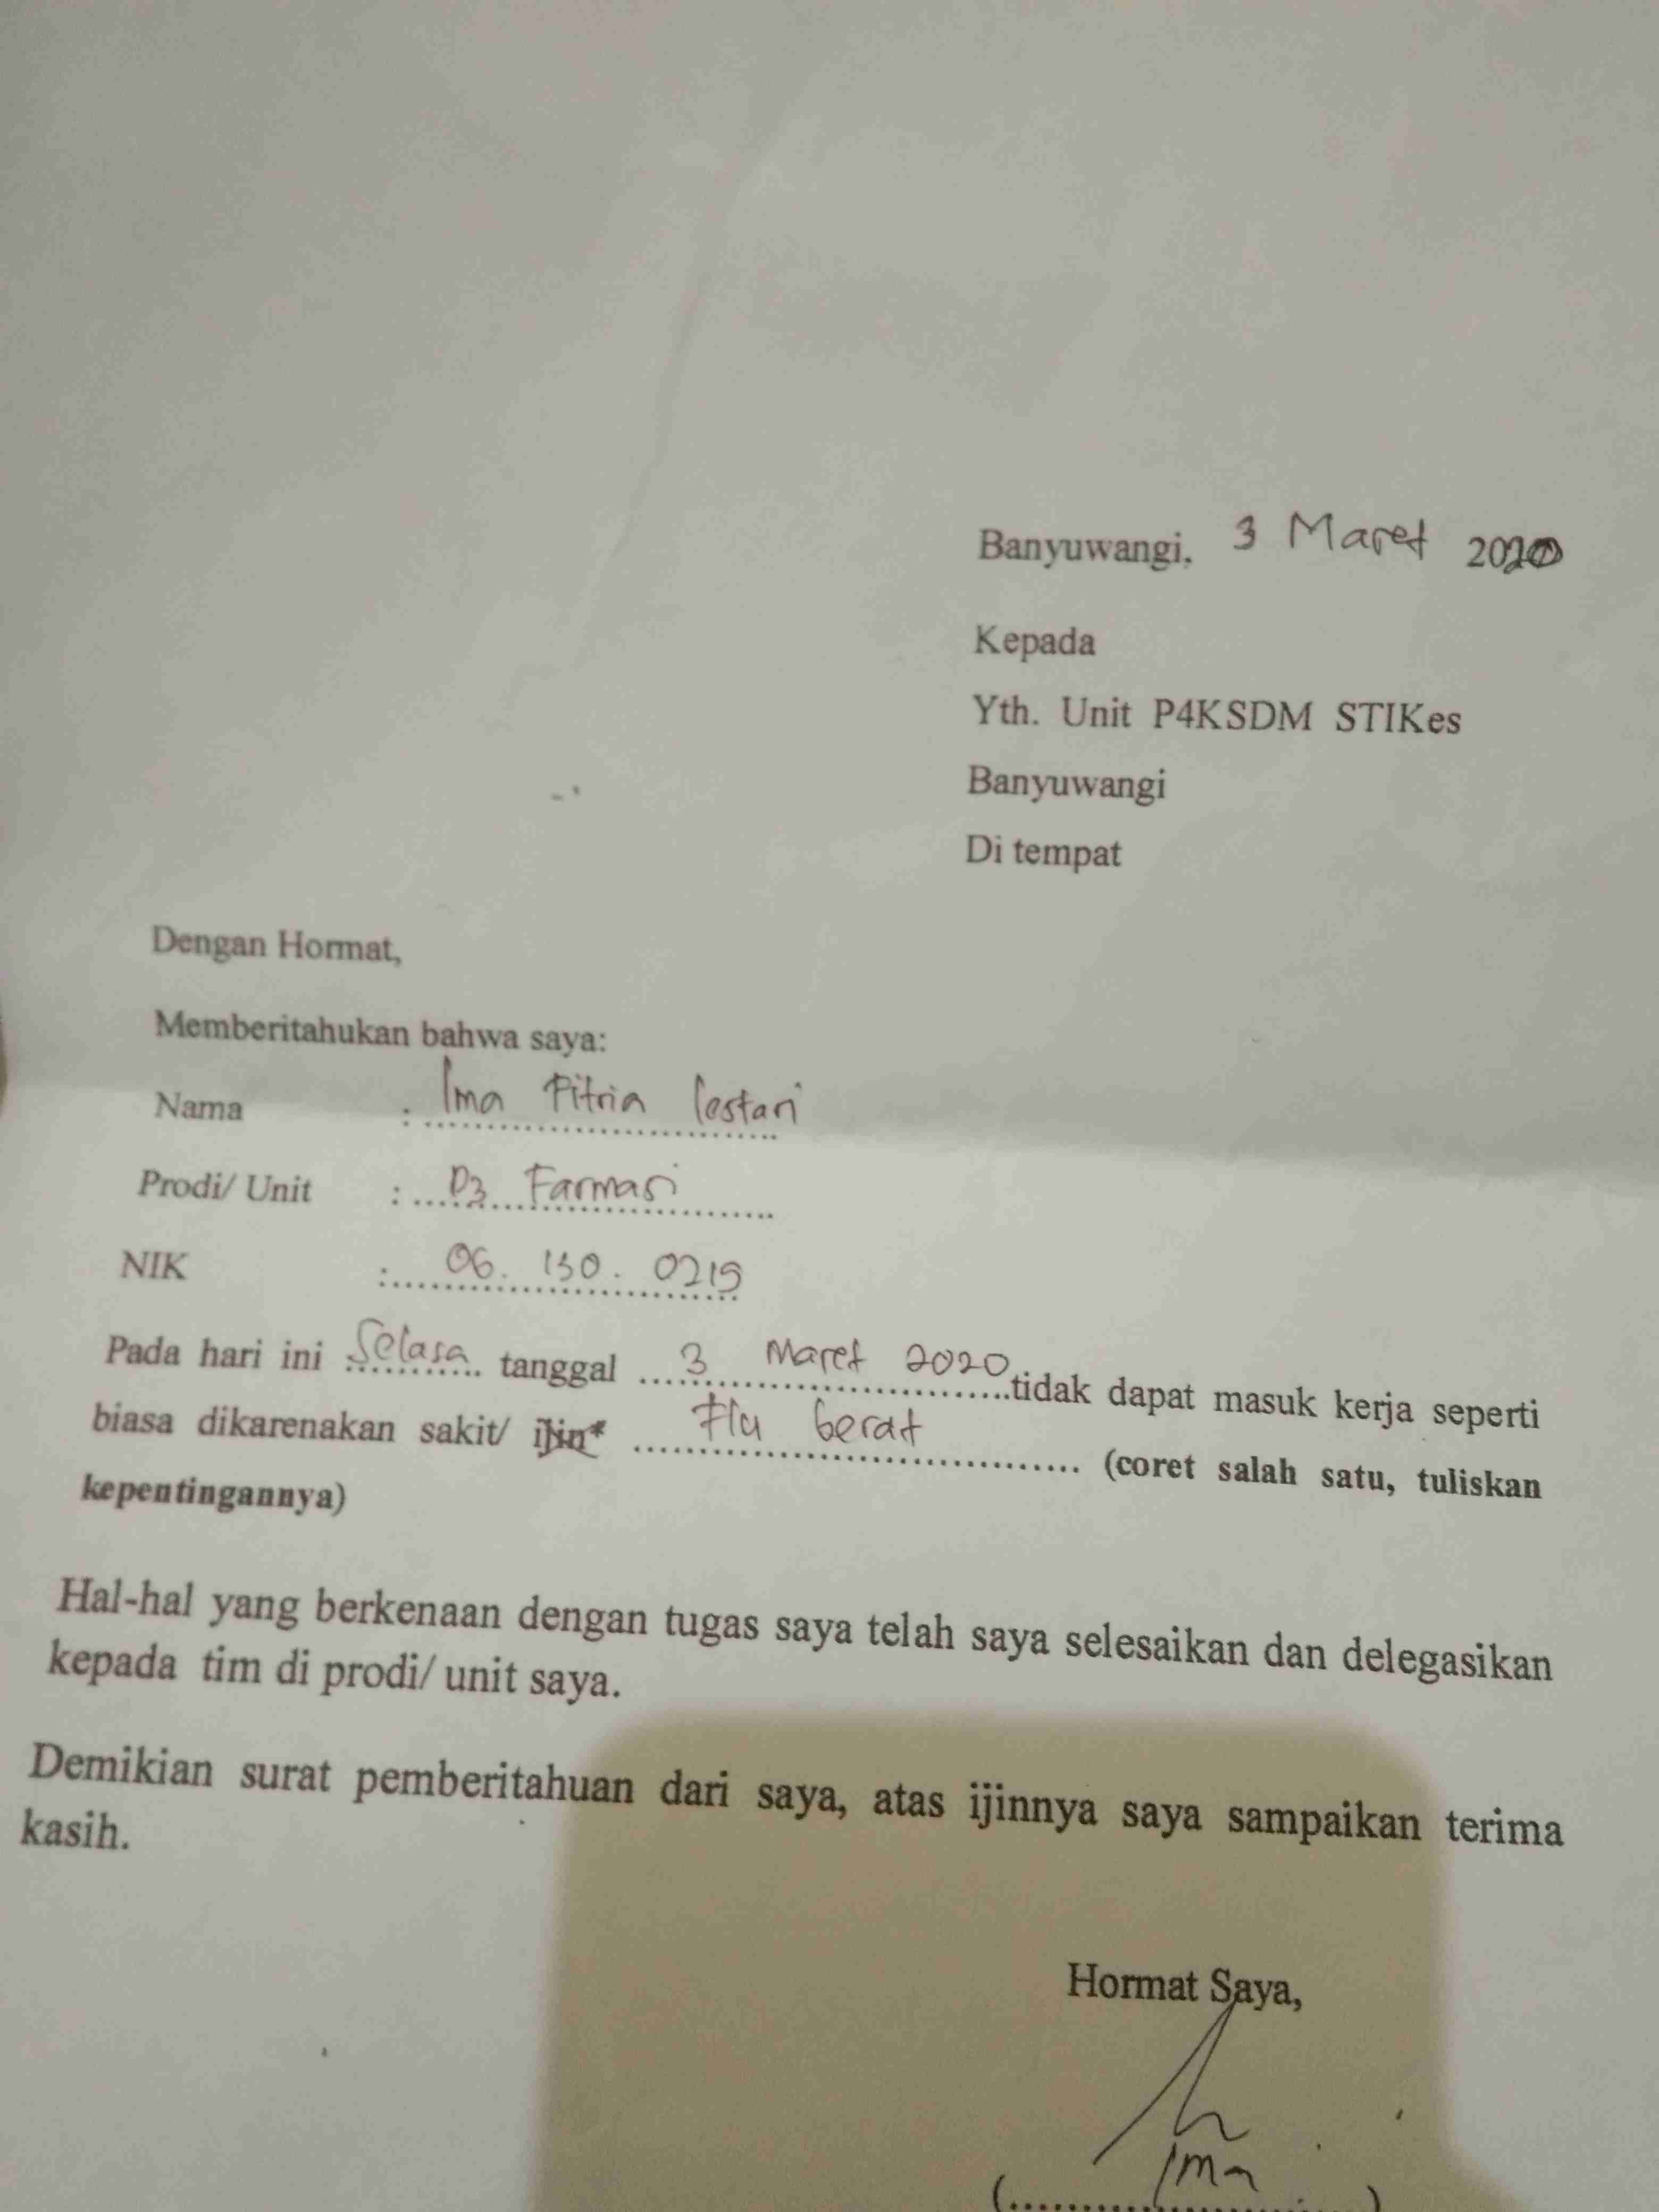 Banyuwangi, 3 Maret 2020
Kepada
Yth. Unit P4KSDM STIKes
Banyuwangi
Di tempat
Dengan Hormat,
Memberitahukan bahwa saya:
Nama : Ima Fitria lestari
Prodi/ Unit : D3 Farmasi
NIK : 06. 130. 0219
Pada hari ini Selasa tanggal 3 Maret 2020 tidak dapat masuk kerja seperti
biasa dikarenakan sakit/ ijin* Flu berat (coret salah satu, tuliskan
kepentingannya)
Hal-hal yang berkenaan dengan tugas saya telah saya selesaikan dan delegasikan
kepada tim di prodi/ unit saya.
Demikian surat pemberitahuan dari saya, atas ijinnya saya sampaikan terima
kasih.
Hormat Saya,
(Ima)